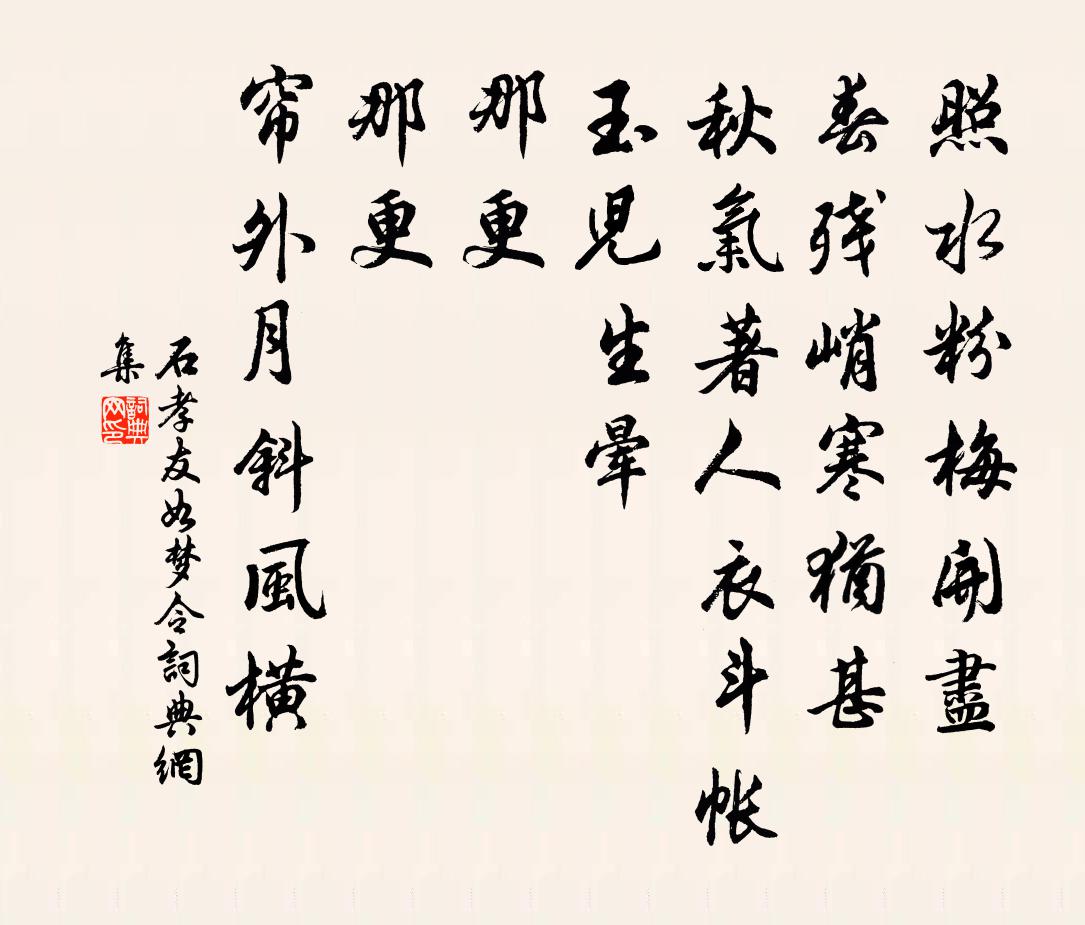 照水粉梅開盡
春残峭寒猶甚
秋氣著人衣斗帳
玉児生暈
那更
那更
帘外月斜風橫
石孝友如梦令詞典網
集
詞典
网印